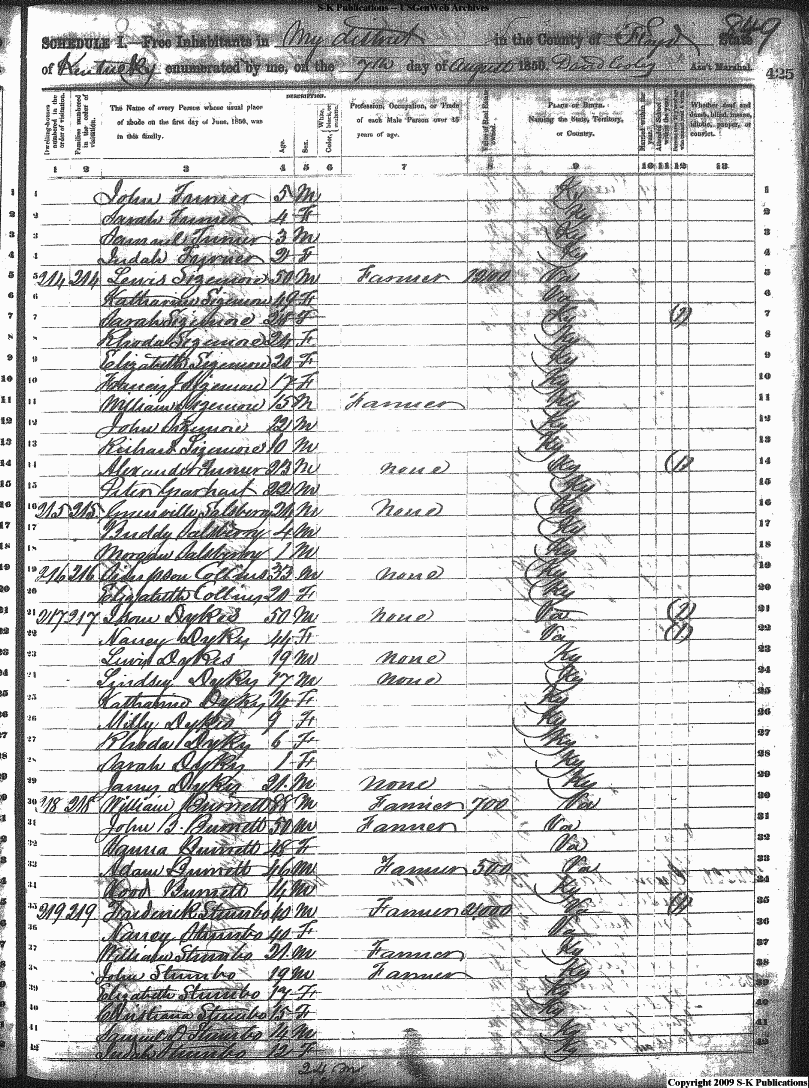 S-K Publications -- USGenWeb Archives
849
SCHEDULE I.—Free Inhabitants in My district in the County of Floyd State
of Kentucky enumerated by me, on the 7th day of August 1850. David Ass't Marshal. 425
DESCRIPTION.
Dwelling-houses numbered in the order of visitation. Families numbered in the order of visitation. The Name of every Person whose usual place of abode on the first day of June, 1850, was in this family. Age. Sex. Color, White, black, or mulatto. Profession, Occupation, or Trade of each Male Person over 15 years of age. Value of Real Estate owned. PLACE OF BIRTH. Naming the State, Territory, or Country. Married within the year. Whether deaf and dumb, blind, insane, idiotic, pauper, or convict.
1 2 3 4 5 6 7 8 9 10 11 12 13
1 John Farmer 5 M Ky 1
2 Sarah Farmer 4 F Ky 2
3 Samuel Turner 3 M Ky 3
4 Judah Farmer 2 F Ky 4
5 214 214 Lewis Sizemore 50 M Farmer 1200 Va 5
6 Katharine Sizemore 49 F Va 6
7 Sarah Sizemore 28 F Ky (1) 7
8 Rhoda Sizemore 24 F Ky 8
9 Elizabeth Sizemore 20 F Ky 9
10 Sizemore 17 F Ky 10
11 William Sizemore 15 M Farmer Ky 11
12 John Sizemore 12 M Ky 12
13 Richard Sizemore 10 M Ky 13
14 Alexander Turner 23 M none Ky (1) 14
15 Peter Gearhart 22 M Ky 15
16 215 215 Salsberry 24 M None Ky 16
17 Buddy Salsberry 4 M Ky 17
18 Morgan Salsberry 1 M Ky 18
19 216 216 Collins 33 M none Ky 19
20 Elizabeth Collins 20 F Ky 20
21 217 217 Isom Dykes 50 M none Va (1) 21
22 Nancy Dykes 44 F Va (1) 22
23 Lewis Dykes 19 M none Ky 23
24 Lindsey Dykes 17 M none Ky 24
25 Katharine Dykes 14 F Ky 25
26 Milly Dykes 9 F Ky 26
27 Rhoda Dykes 6 F Ky 27
28 Sarah Dykes 1 F Ky 28
29 James Dykes 21 M None Ky 29
30 218 218 William Burnett 88 M Farmer 700 Va 30
31 John B. Burnett 50 M Farmer Va 31
32 Burnett 48 F Va 32
33 Adam Burnett 46 M Farmer 500 Va 33
34 Wood Burnett 14 M Ky 34
35 219 219 Frederick Stumbo 40 M Farmer 2000 (1) 35
36 Nancy Stumbo 40 F Va 36
37 William Stumbo 21 M Farmer Ky 37
38 John Stumbo 19 M Farmer Ky 38
39 Elizabeth Stumbo 17 F Ky 39
40 Christiana Stumbo 15 F Ky 40
41 Samuel D Stumbo 14 M Ky 41
42 Judah Stumbo 12 F Ky 42
24 m
Copyright 2009 S-K Publications